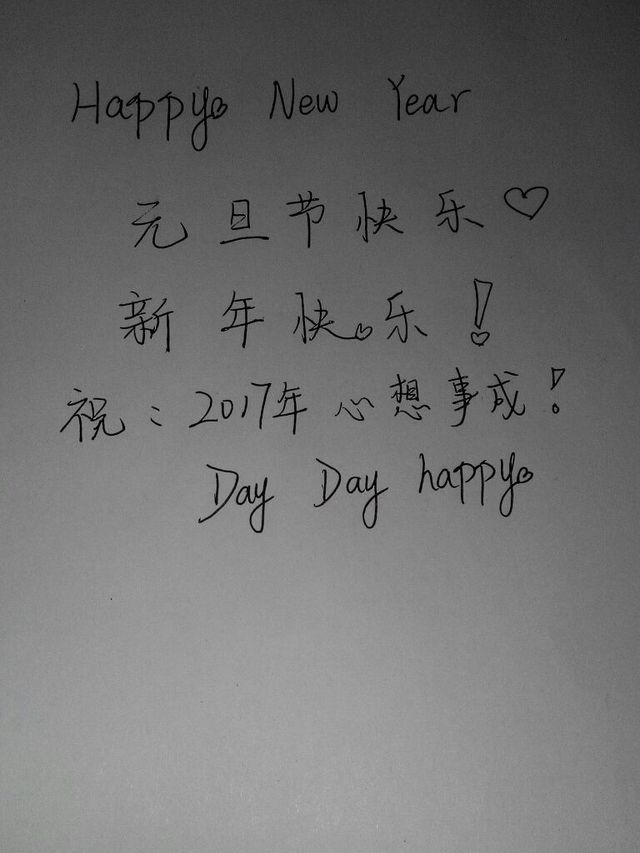 Happy New Year
元旦节快乐♡
新年快乐！
祝：2017年心想事成！
Day Day happy